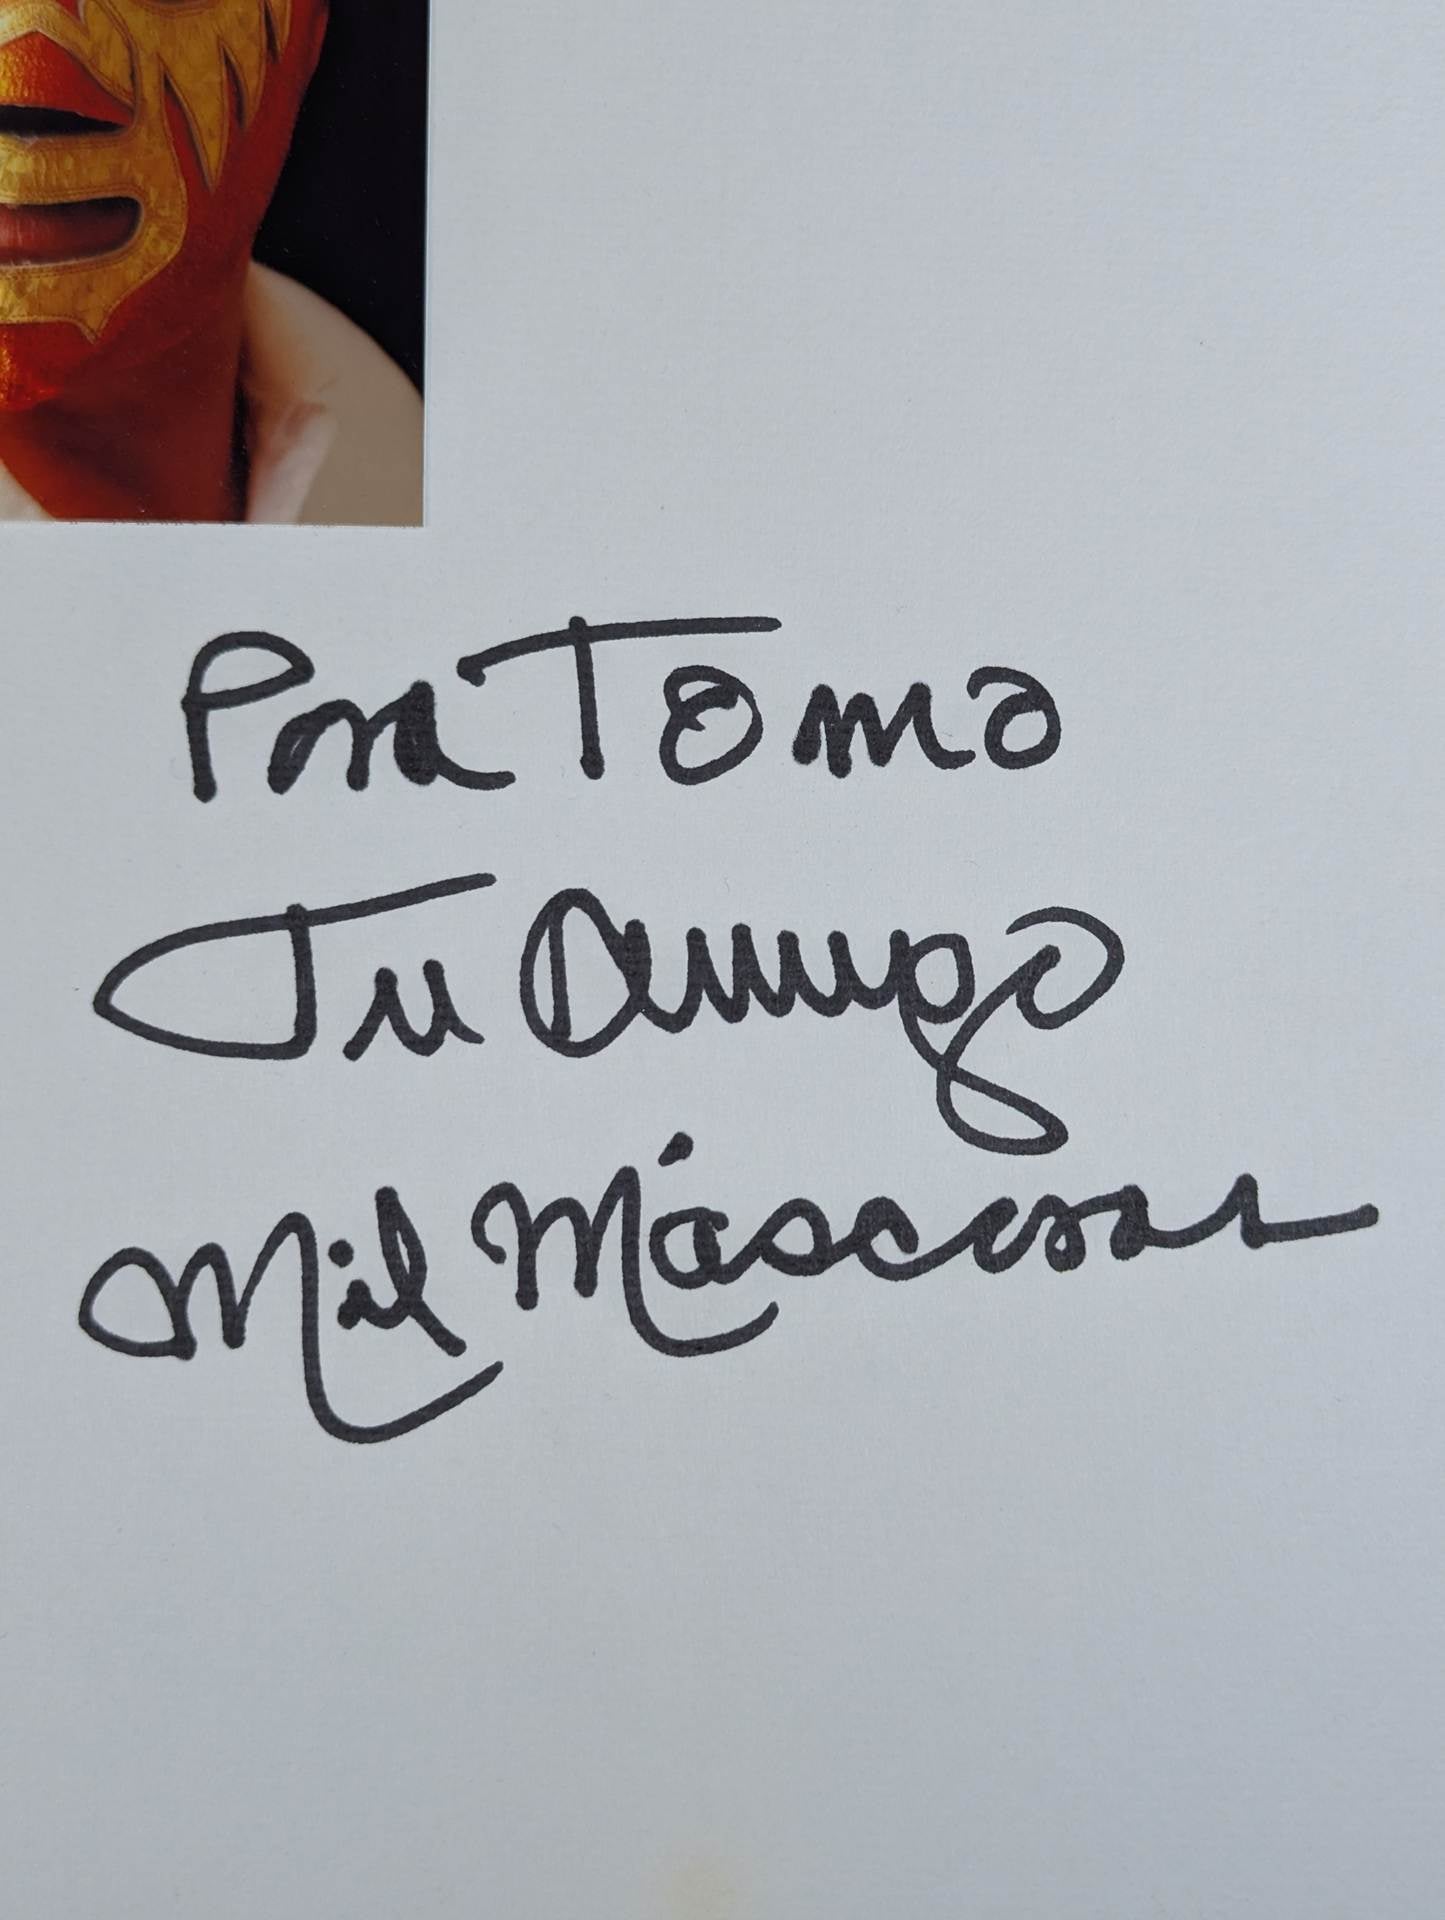 Para Tomo
Tu Amigo
Mil Máscaras